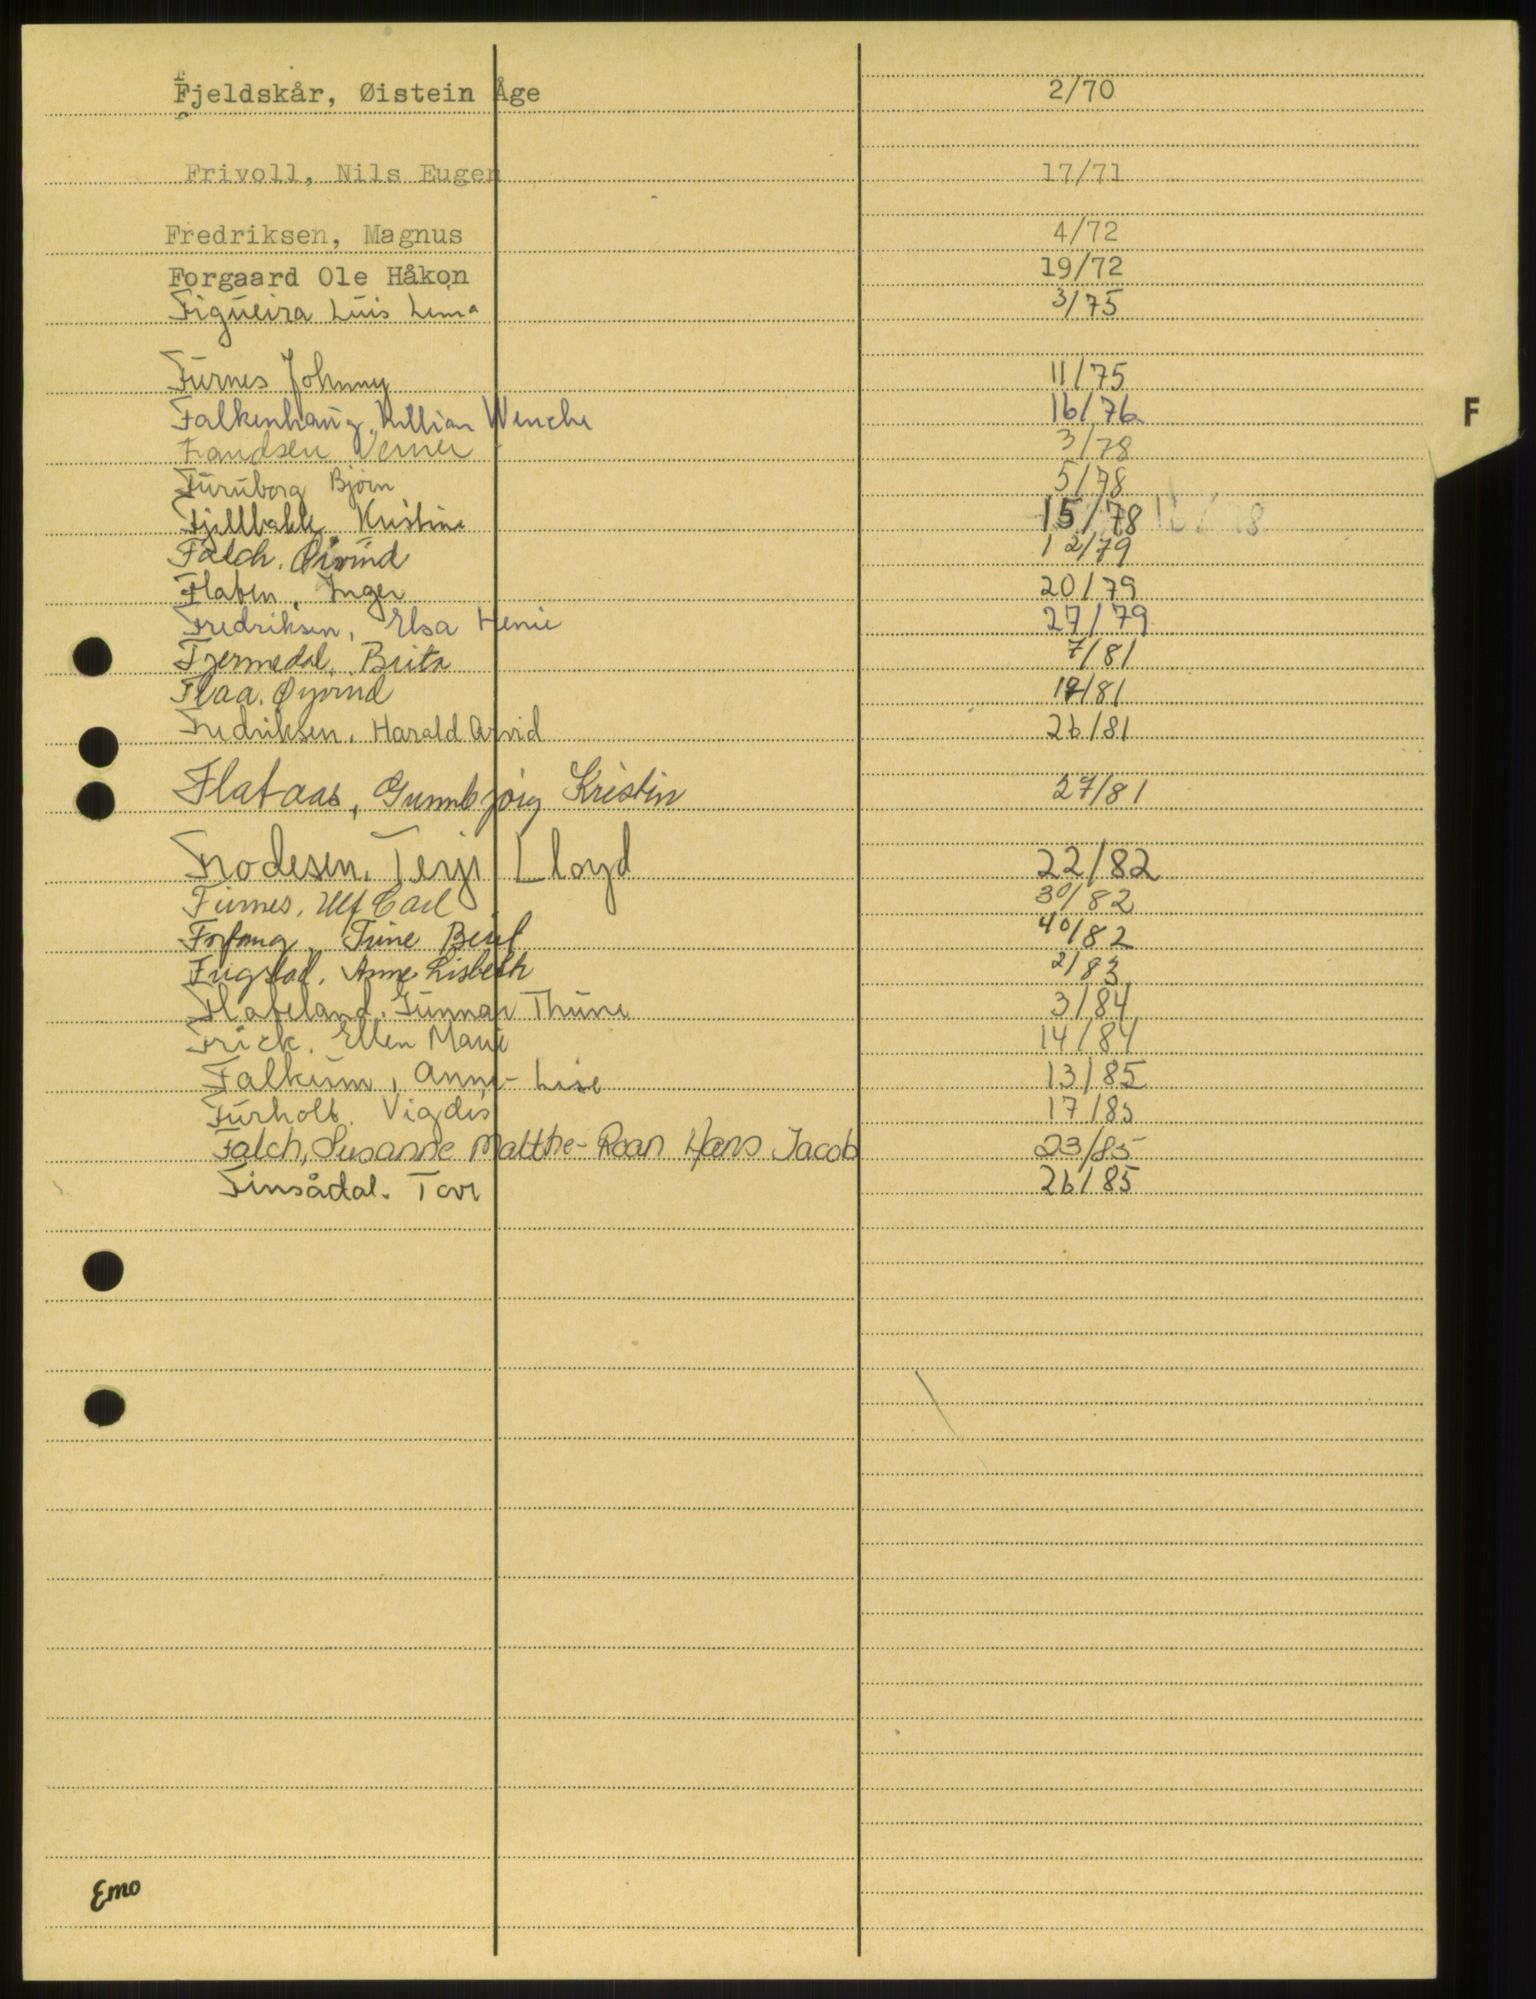 Fjeldskår, Øistein Åge 2/70
Frivoll, Nils Eugen 17/71
Fredriksen, Magnus 4/72
Forgaard Ole Håkon 19/72
Figueira Luis Lima 3/75
Furnes Johnny 11/75
Falkenhaug, Wenche 16/76
F
Verner 3/78
Furuborg Bjørn 5/78
Fjellbakk Kristine 15/78
Falch. Øivind 12/79
Flaten, Inger 20/79
Fredriksen, Elsa 27/79
Fjermedal, Brita 7/81
Flaa. Øyvind /81
Fredriksen, Harald Arvid 26/81
Flataas, Gunnbjørg Kristin 27/81
Frodesen, Terje Lloyd 22/82
Furnes, Ulf Carl 30/82
Forfang, Trine Beret 40/82
Fuglstad, Anne Lisbeth 2/83
Flateland, Gunnar Thune 3/84
Frick. Ellen Marie 14/84
Falkum, Anne-Lise 13/85
Furholt. Vigdis 17/85
Falch, Susanne Malthe-Roan Hans Jacob 23/85
Finsådal. Tove 26/85
Emo